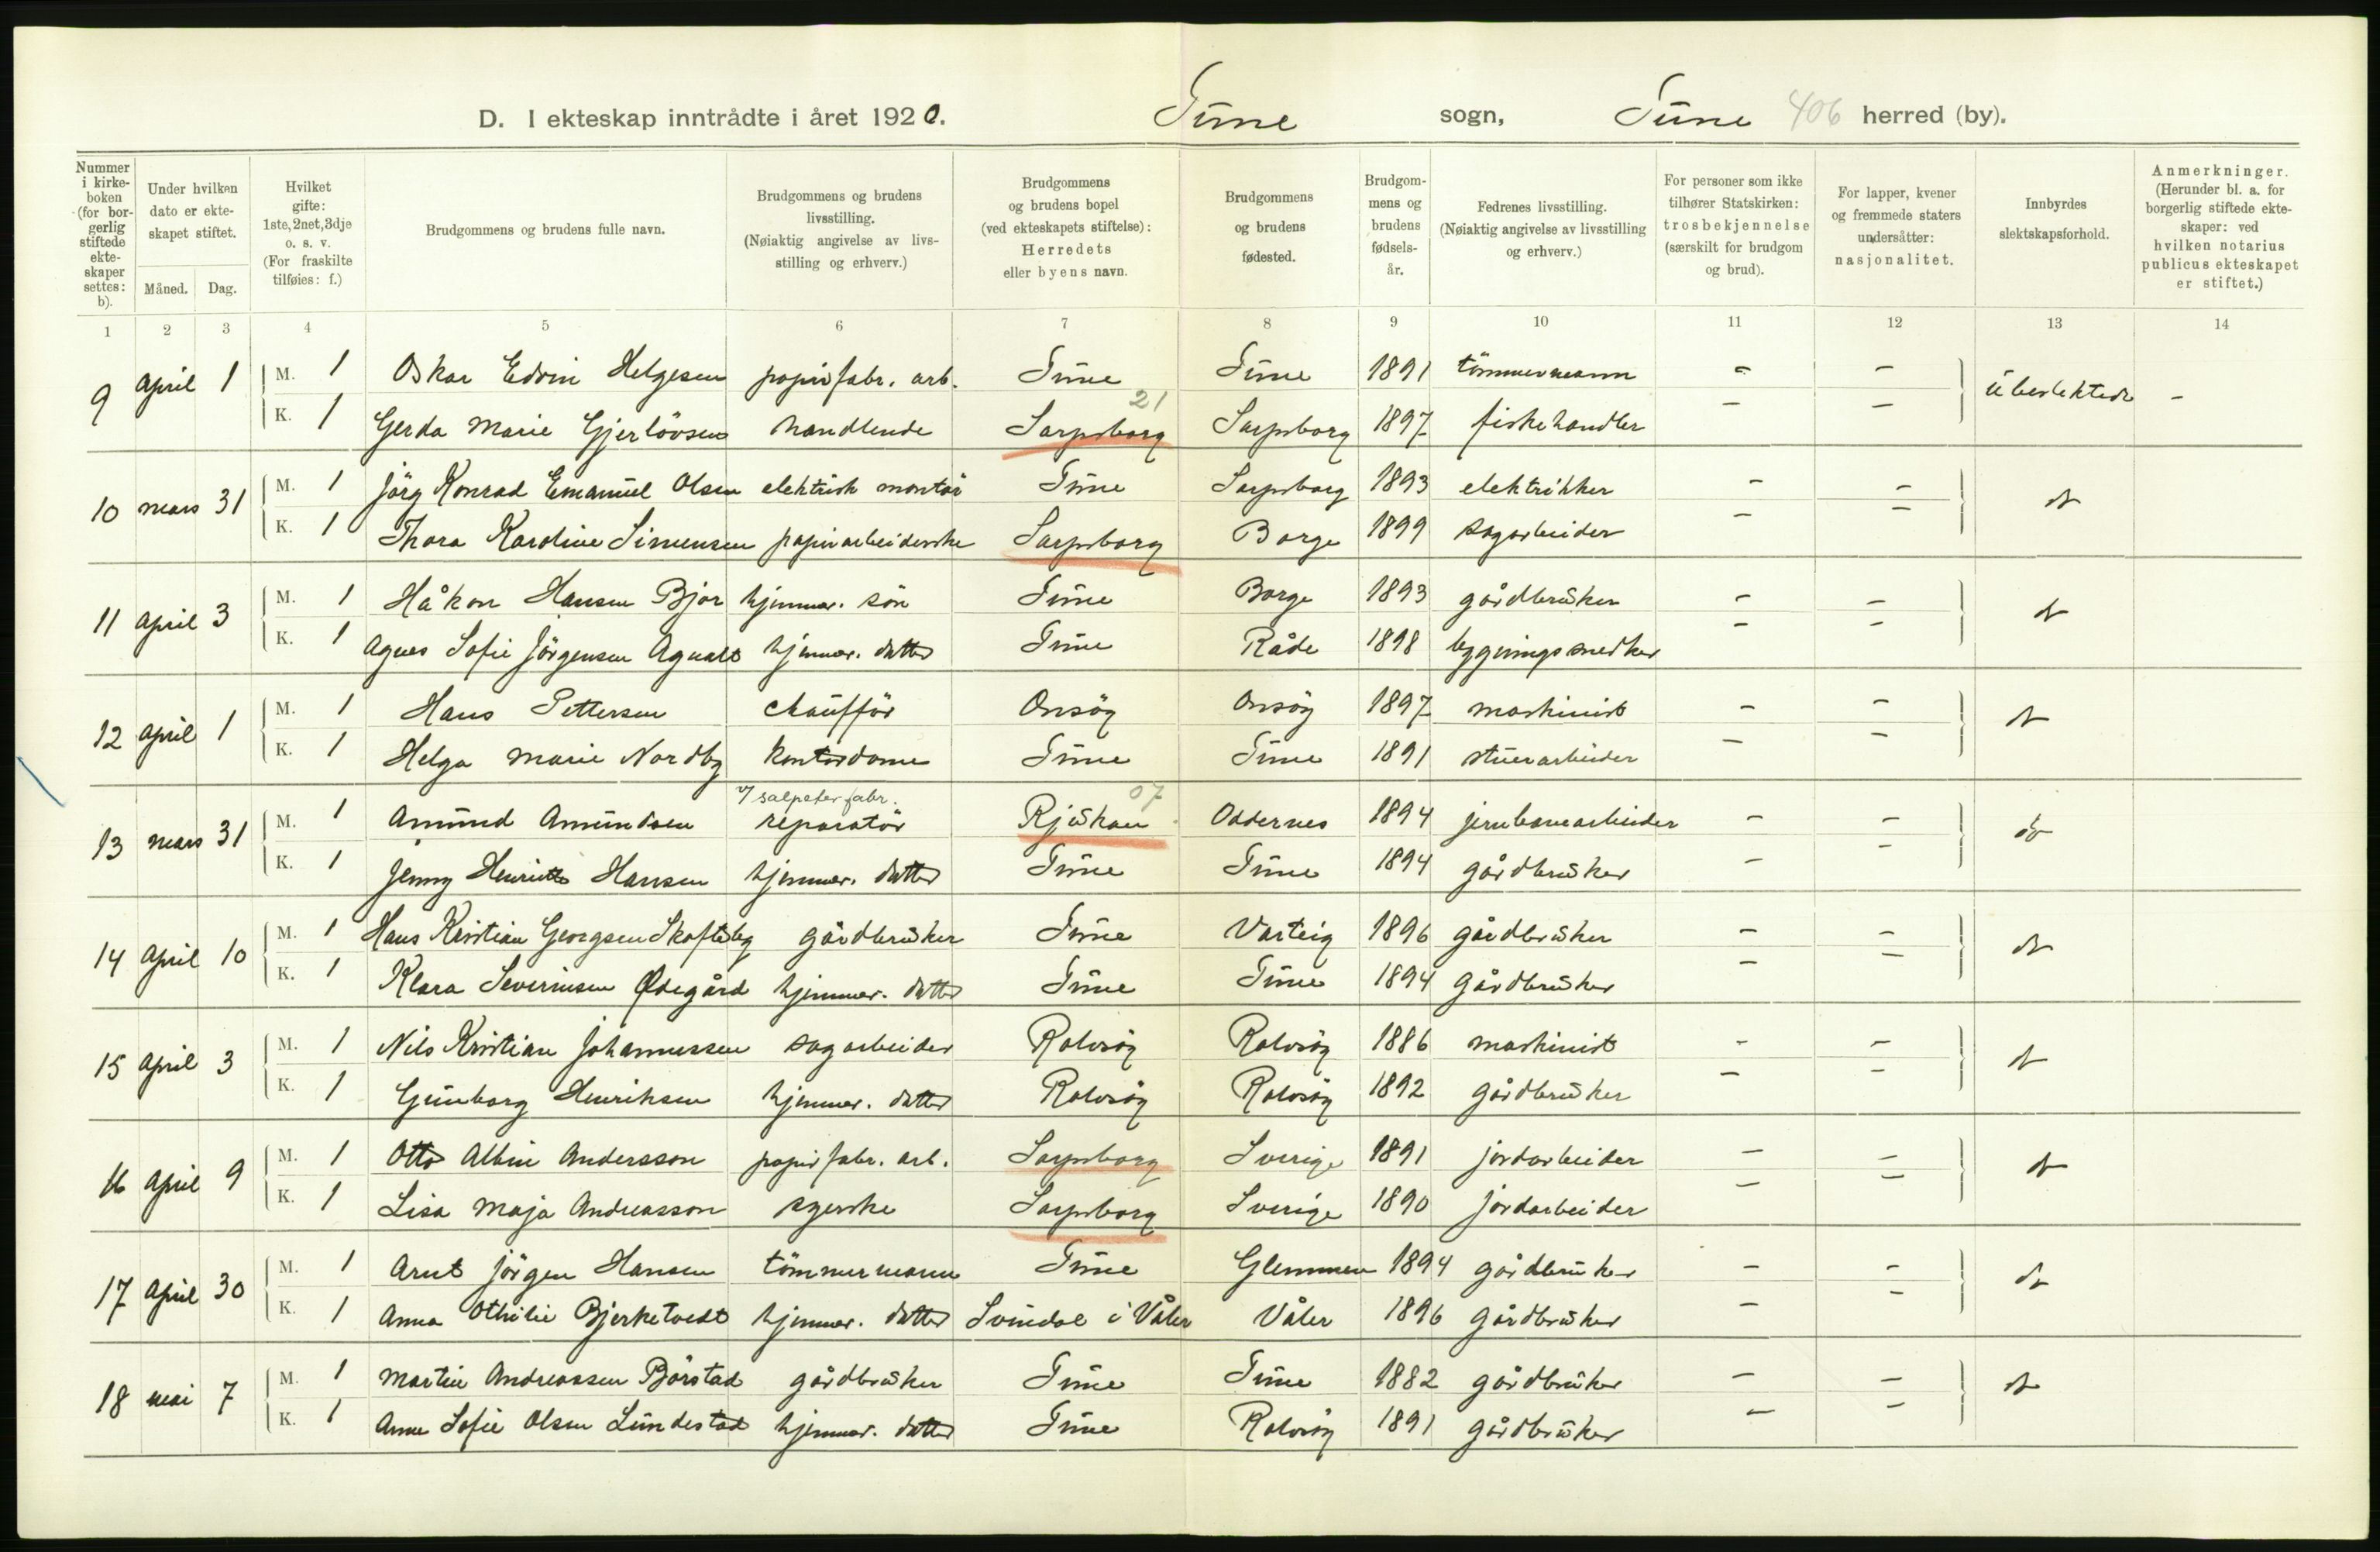 D. I ekteskap inntrådte i året 1920. Tune sogn, Tune 406 herred (by).
Nummer i kirke-boken (for bor-gerlig stiftede ekte-skaper settes: b).
Under hvilken dato er ekte-skapet stiftet.
Måned. Dag.
Hvilket gifte: 1ste, 2net, 3dje o. s. v. (For fraskilte tilføies: f.)
Brudgommens og brudens fulle navn.
Brudgommens og brudens livsstilling. (Nøiaktig angivelse av livs-stilling og erhverv.)
Brudgommens og brudens bopel (ved ekteskapets stiftelse): Herredets eller byens navn.
Brudgommens og brudens fødested.
Brudgom-mens og brudens fødsels-år.
Fedrenes livsstilling. (Nøiaktig angivelse av livsstilling og erhverv.)
For personer som ikke tilhører Statskirken: trosbekjennelse (særskilt for brudgom og brud).
For lapper, kvener og fremmede staters undersåtter: nasjonalitet.
Innbyrdes slektskapsforhold.
Anmerkninger. (Herunder bl. a. for borgerlig stiftede ekte-skaper: ved hvilken notarius publicus ekteskapet er stiftet.)
1 2 3 4 5 6 7 8 9 10 11 12 13 14
9 april 1 M. 1 Oskar Edvin Helgesen papirfabr. arb. Tune Tune 1891 tömmermann - - ubeslektede -
K. 1 Gerda Marie Gjerlövsen handlende 21 Sarpsborg Sarpsborg 1897 fiskehandler - -
10 mars 31 M. 1 Jörg Konrad Emanuel Olsen elektrisk montör Tune Sarpsborg 1893 elektrikker - - do
K. 1 Thora Karoline Simensen papirarbeiderske Sarpsborg Borge 1899 sagarbeider - -
11 april 3 M. 1 Håkon Hansen Bjor hjemmev. sön Tune Borge 1893 gårdbruker - - do
K. 1 Agnes Sofie Jörgensen Agnalt hjemmev. datter Tune Råde 1898 bygningssnedker - -
12 april 1 M. 1 Hans Pettersen chaufför Onsöy Onsöy 1897 maskinist - - do
K. 1 Helga Marie Nordby kontordame Tune Tune 1891 stuerarbeider - -
13 mars 31 M. 1 Amund Amundsen v/ salpeterfabr. reparatör 07 Rjukan Oddernes 1894 jernbanearbeider - - do
K. 1 Jenny Henriette Hansen hjemmev. datter Tune Tune 1894 gårdbruker - -
14 april 10 M. 1 Hans Kristian Georgsen Skofteby gårdbruker Tune Varteig 1896 gårdbruker - - do
K. 1 Klara Severinsen Ødegård hjemmev. datter Tune Tune 1894 gårdbruker - -
15 april 3 M. 1 Nils Kristian Johannessen sagarbeider Rolvsöy Rolvsöy 1886 maskinist - - do
K. 1 Gunborg Henriksen hjemmev. datter Rolvsöy Rolvsöy 1892 gårdbruker - -
16 april 9 M. 1 Otto Albin Andersson papirfabr. arb. Sarpsborg Sverige 1891 jordarbeider - - do
K. 1 Lisa Maja Andreasson syerske Sarpsborg Sverige 1890 jordarbeider - -
17 april 30 M. 1 Arnt Jörgen Hansen tömmermann Tune Glemmen 1894 gårdbruker - - do
K. 1 Anna Othilie Bjerketvedt hjemmev. datter Svindal i Våler Våler 1896 gårdbruker - -
18 mai 7 M. 1 Martin Andreassen Börstad gårdbruker Tune Tune 1882 gårdbruker - - do
K. 1 Anne Sofie Olsen Lundestad hjemmev. datter Tune Rolvsöy 1891 gårdbruker - -